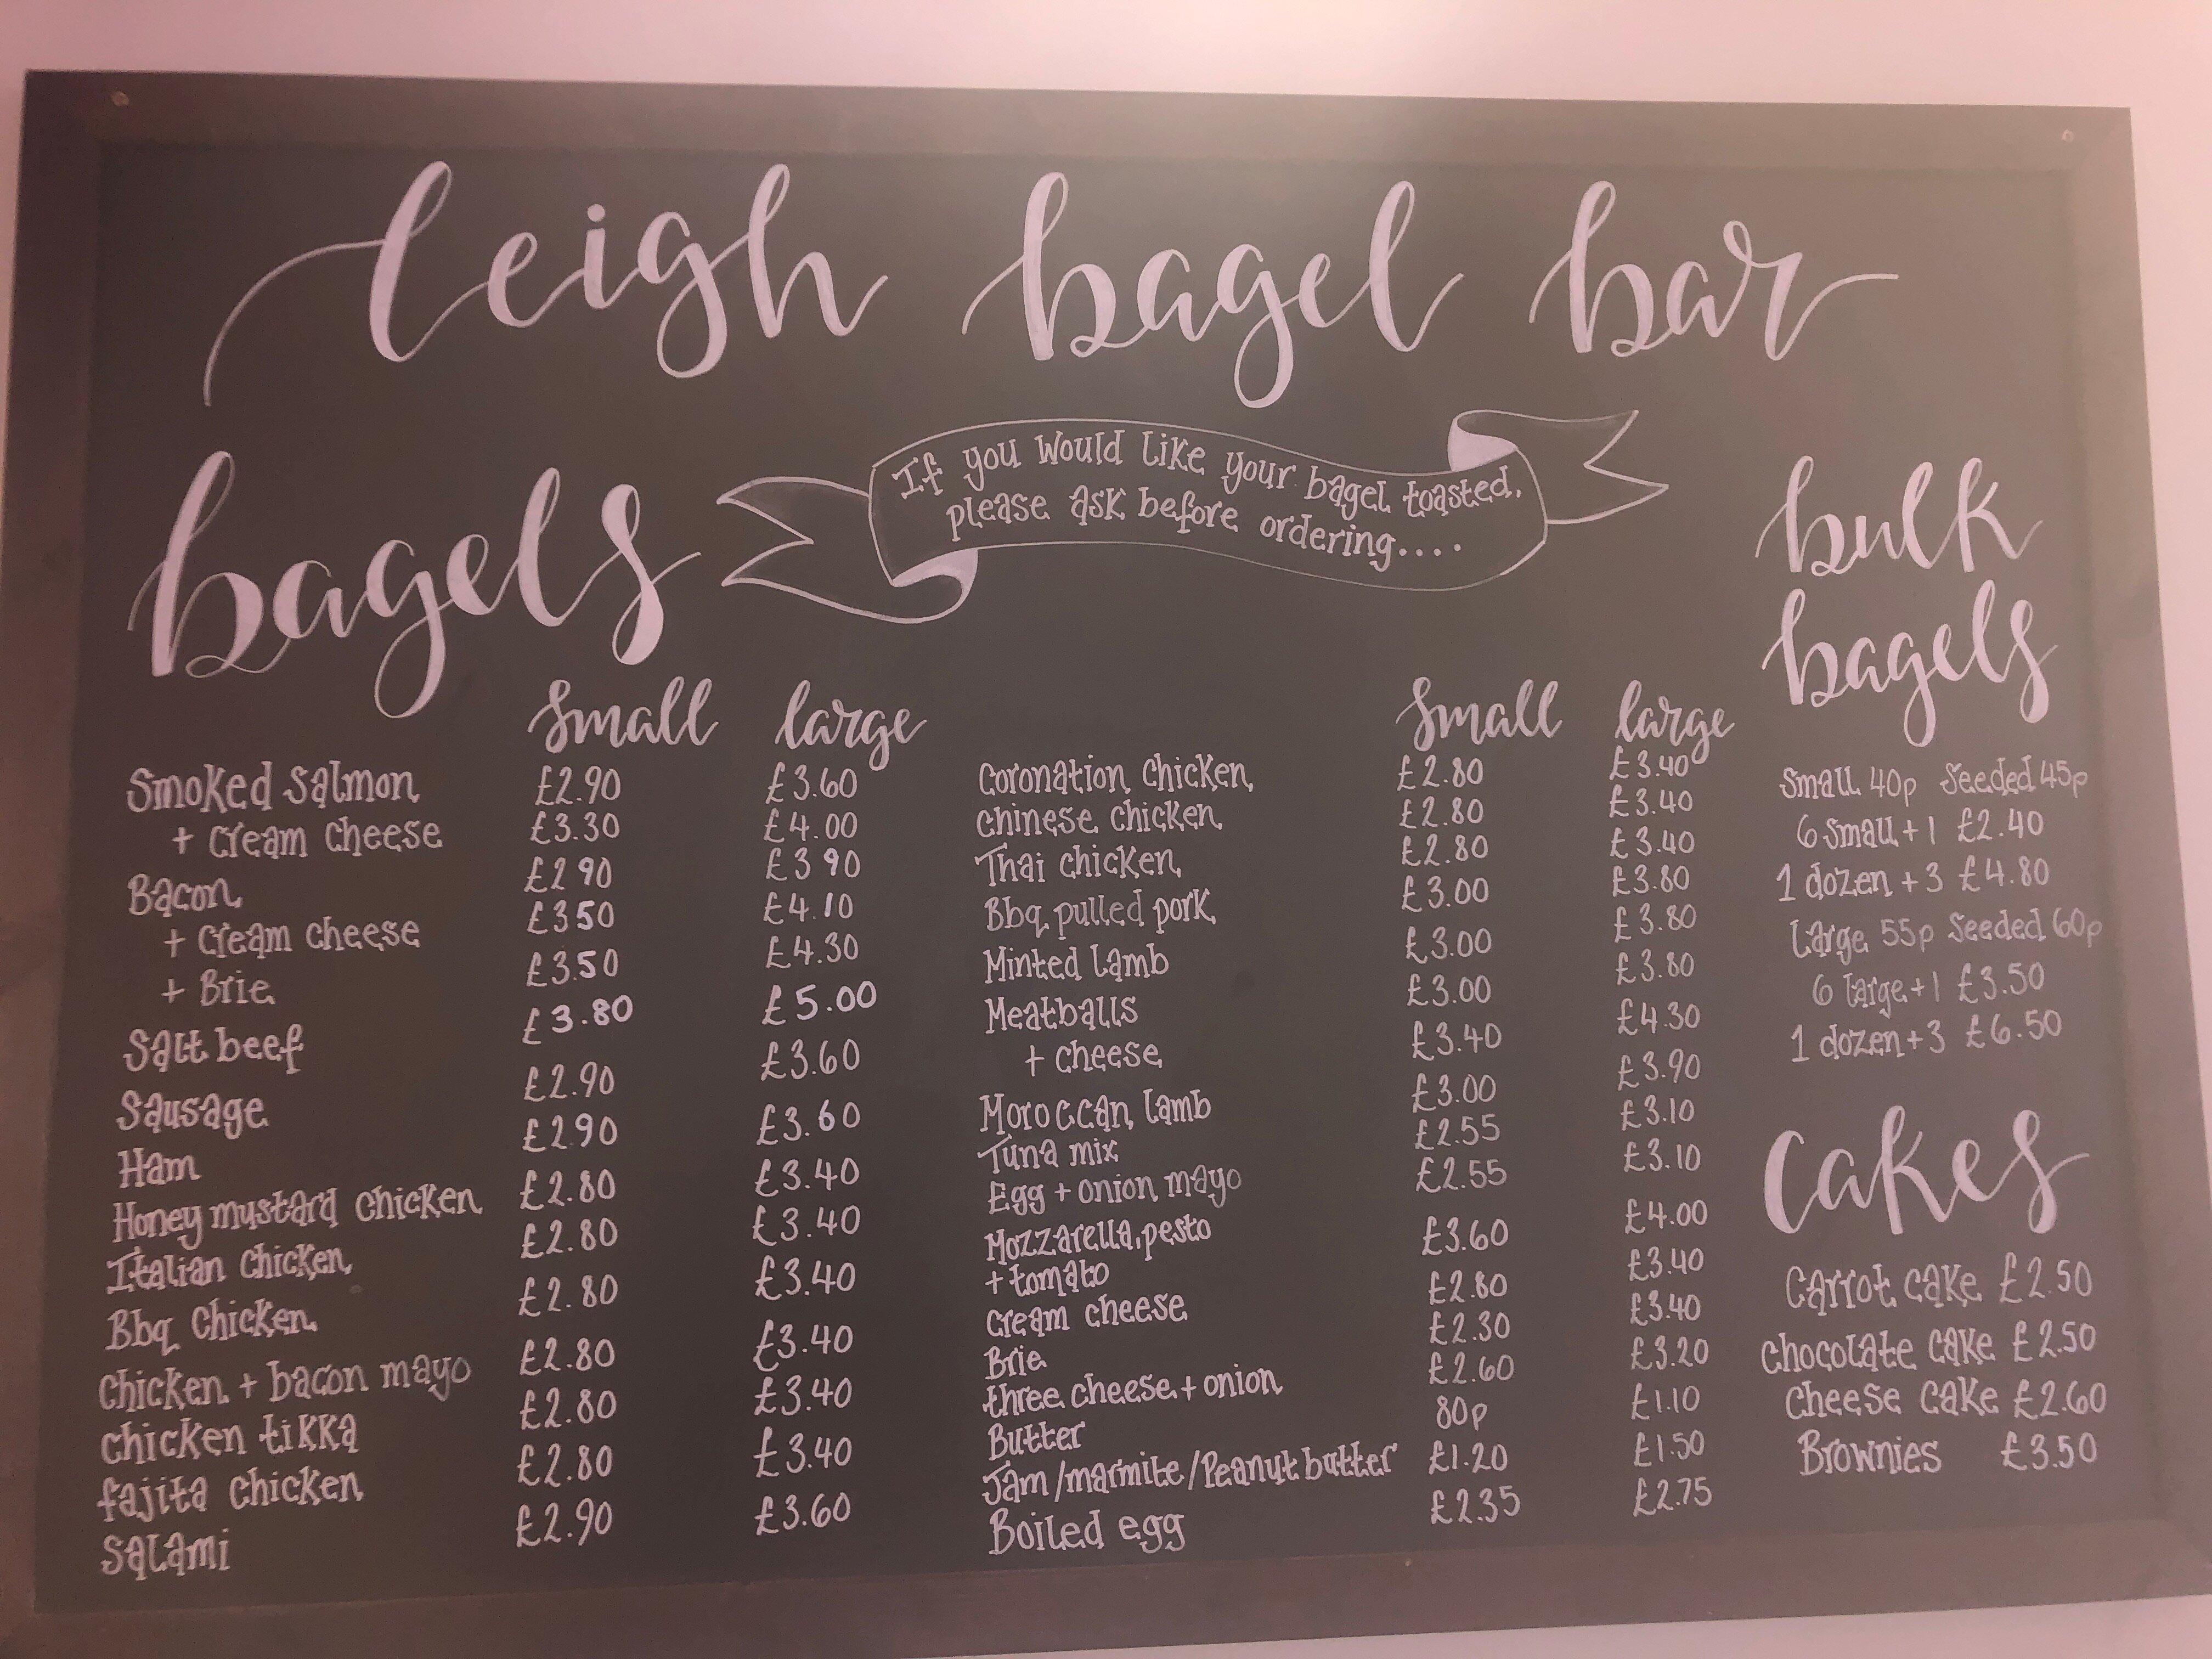 leigh bagel bar
If you would like your bagel toasted,
please ask before ordering....
bagels
small large
Smoked salmon £2.90 £3.60
+ cream cheese £3.30 £4.00
Bacon £2 90 £3 90
+ cream cheese £3 50 £4.10
+ Brie £3.50 £4.30
Salt beef £3.80 £5.00
Sausage £2.90 £3.60
Ham £2.90 £3.60
Honey mustard chicken £2.80 £3.40
Italian chicken £2.80 £3.40
Bbq chicken £2.80 £3.40
Chicken + bacon mayo £2.80 £3.40
chicken tikka £2.80 £3.40
fajita chicken £2.80 £3.40
Salami £2.90 £3.60
small large
Coronation chicken £2.80 £3.40
chinese chicken £2.80 £3.40
Thai chicken £2.80 £3.40
Bbq pulled pork £3.00 £3.80
Minted lamb £3.00 £3.80
Meatballs £3.00 £3.80
+ cheese £3.40 £4.30
Moroccan lamb £3.00 £3.90
Tuna mix £2.55 £3.10
Egg + onion mayo £2.55 £3.10
Mozzarella, pesto
+ tomato £3.60 £4.00
cream cheese £2.80 £3.40
Brie £2.30 £3.40
three cheese + onion £2.60 £3.20
Butter 80p £1.10
Jam/marmite/Peanut butter £1.20 £1.50
Boiled egg £2.35 £2.75
bulk
bagels
Small 40p Seeded 45p
6 small + 1 £2.40
1 dozen + 3 £4.80
Large 55p Seeded 60p
6 large + 1 £3.50
1 dozen + 3 £6.50
cakes
Carrot cake £2.50
chocolate cake £2.50
Cheese cake £2.60
Brownies £3.50